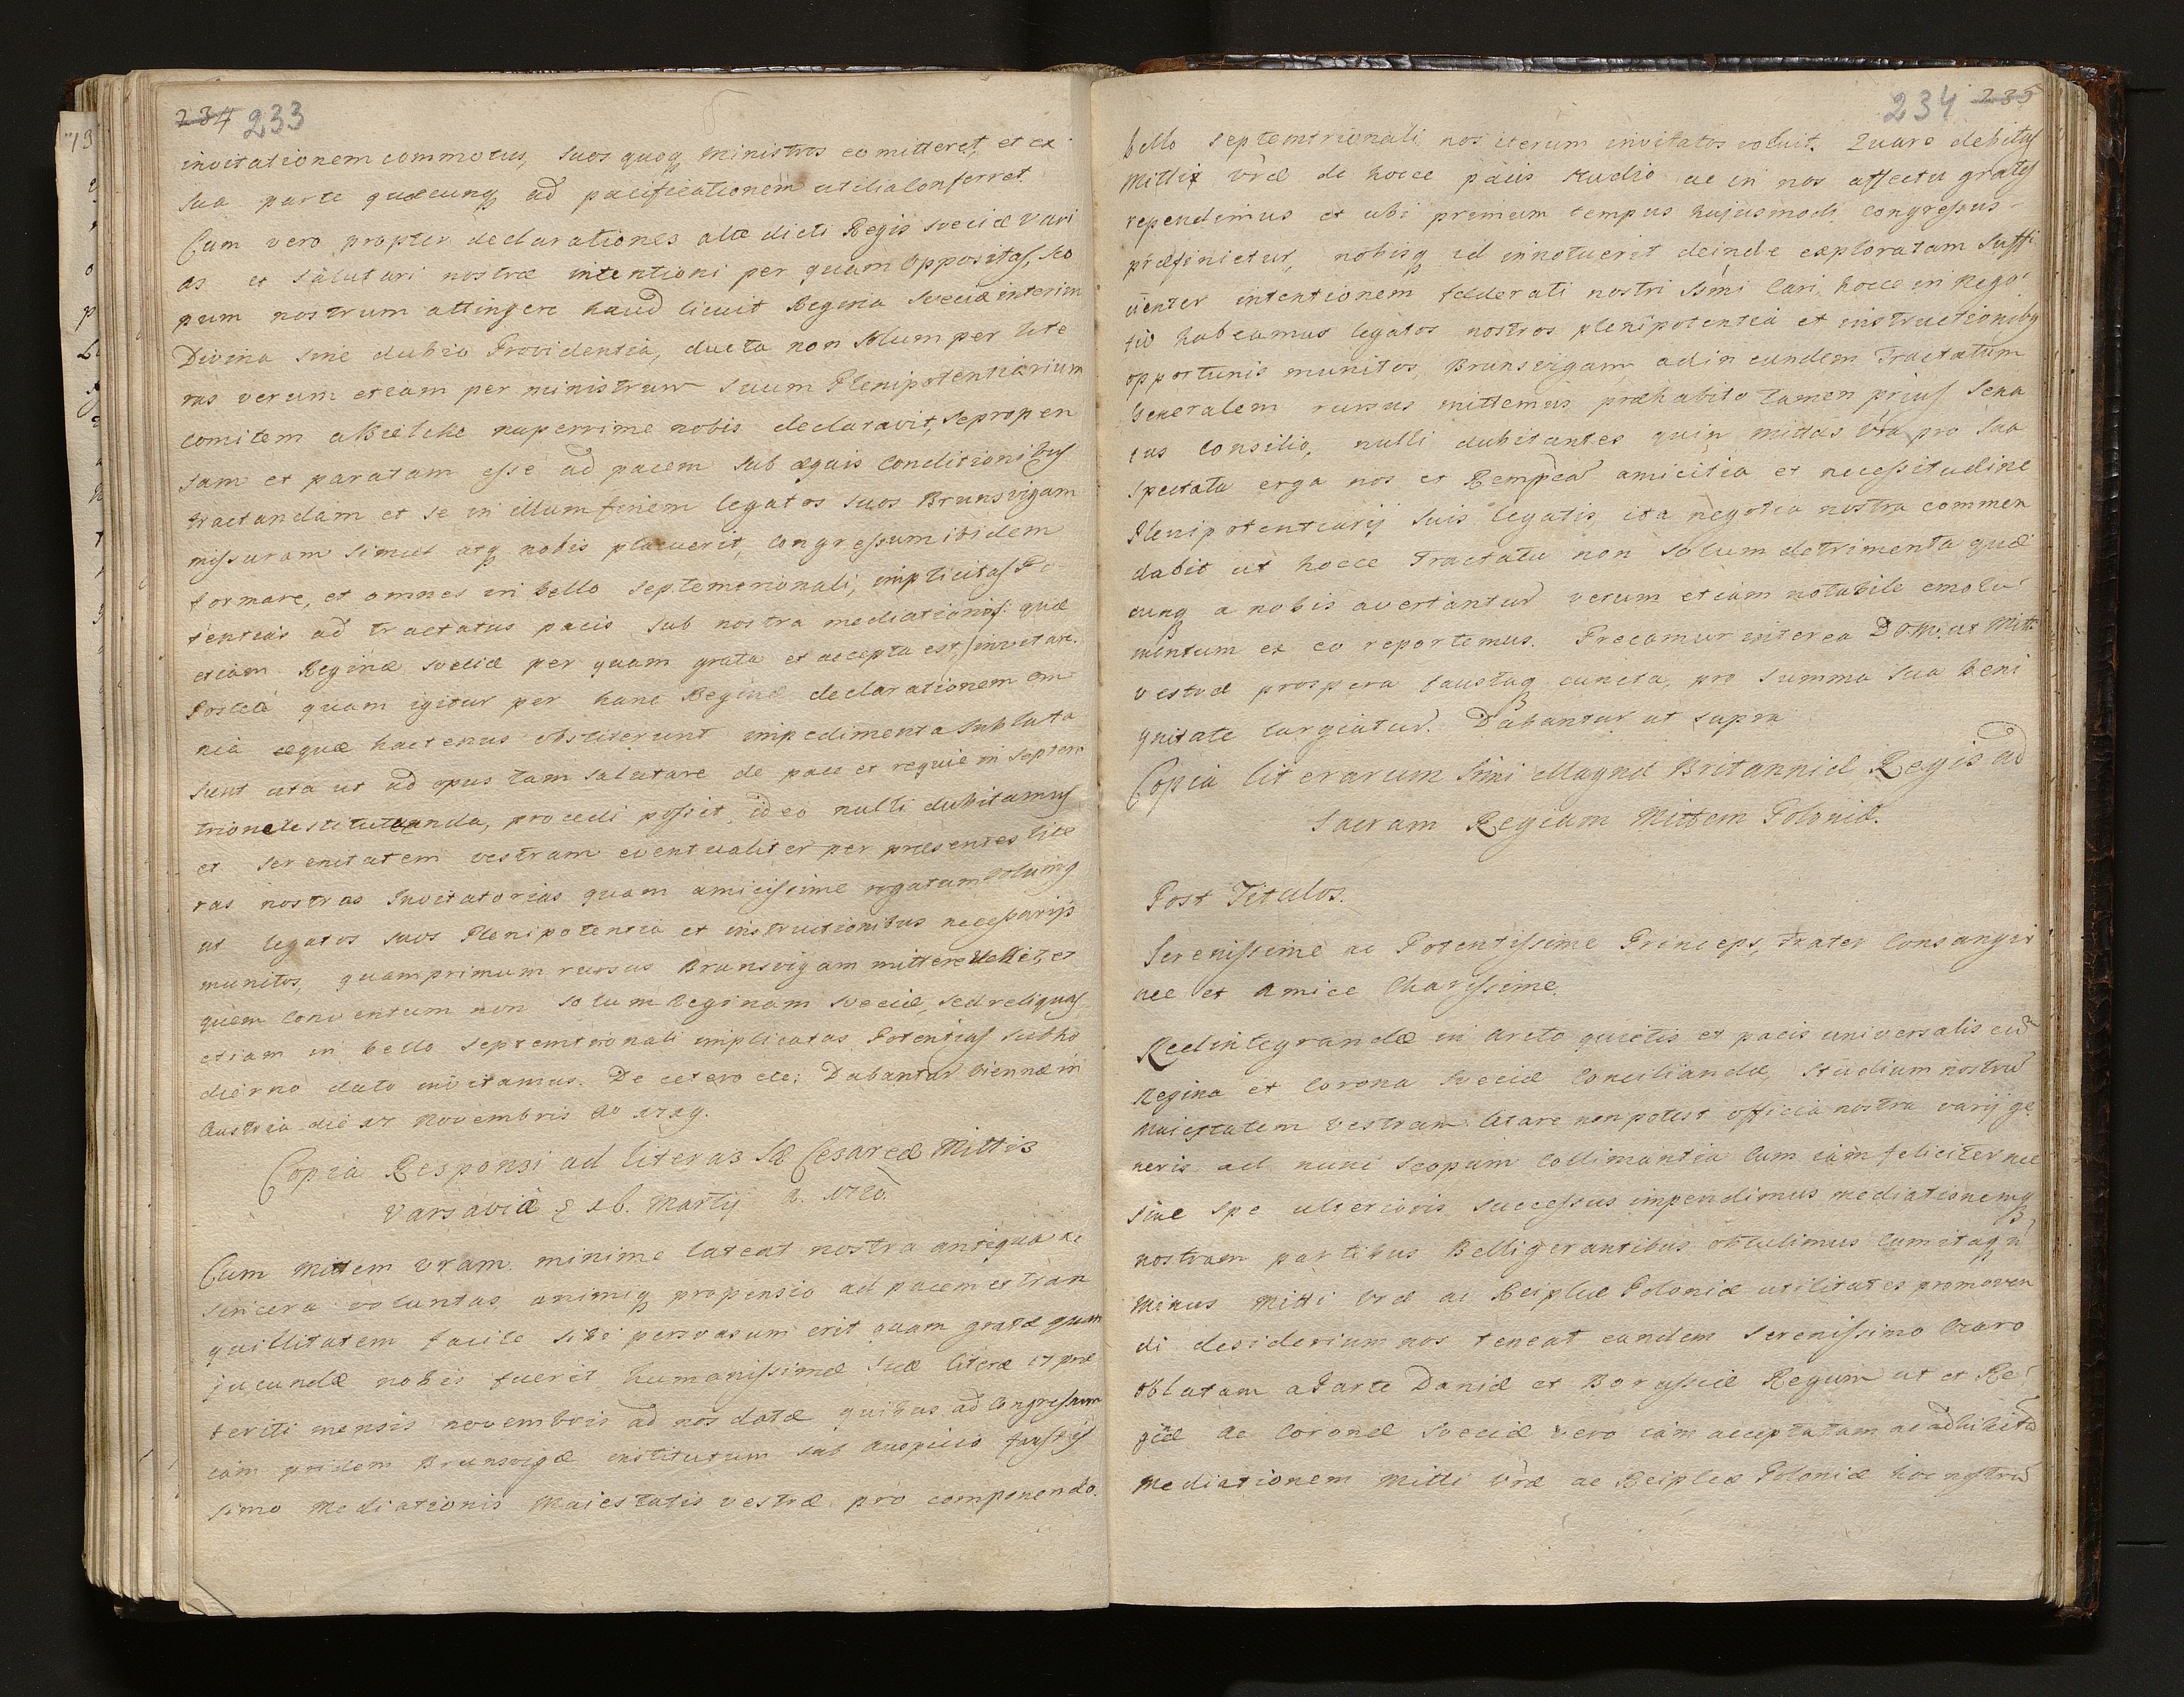 234 233
invitationem commotus, suos quoq ministros eo mitteret, et ex
sua parte quæcunq ad pacificationem utilia Conferret.
Cum vero propter declarationes alte dicti Regis Sveciæ vari
as et salutari nostræ intentioni per quam oppositas, sco
pum nostrum attingere haud licuit Regina Sveciæ interim
Divina sine dubio Providentia, ducta non solum per lite
ras verum etiam per ministrum suum Plenipotentiarium
Comitem a Bielche nuperrime nobis declaravit, se propen
sam et paratam esse ad pacem sub æquis Conditionibus
tractandam et se in illum finem legatos suos Brunsvigam
missuram simul atq nobis placuerit, Congressum ibidem
formare, et omnes in bello septemtrionali, implicitas Po
tentias ad tractatus pacis sub nostra mediationis: quæ
etiam Reginæ Sveciæ per quam grata et accepta est, / invitare.
Postea quam igitur per hanc Reginæ declarationem om
nia æquæ hactenus obstiterunt impedimenta sublata
sunt uta ut ad opus tam salutare de pace et requie in septem
trione procedi possit, ideo nulli dubitamus
et serenitatem vestram eventualiter per præsentes lite
ras nostras Invitatorias quam amicissime rogatam volumq
ut legatos suos Plenipotentia et instructionibus necessarijs
munitos, quamprimum rursus Brunsvigam mittere velit, et
quem Conventum non solum Reginam Sveciæ, sed reliquas
etiam in bello septemtrionali implicatas Potentias sub ho
dierno dato invitamus. De cetero etc: Dabantur Viennæ in
Austria die 17 Novembris Ao 1719.
Copia Responsi ad literas Sæ Cesareæ Mittis
Varsaviæ 16. Martij a. 1720.
Cum Mittem Vram. minime lateat nostra antiqua ac
sincera voluntas, animiq propensio ad pacem et tran
quillitatem facile sibi persvasum erit quam gratæ quam
jucundæ nobis fuerit humanissimæ suæ literæ 17 præ
teriti mensis novembris ad nos datæ quibus ad Congressum
iam pridem Brunsvigæ institutum sub auspicio faustis
simo Mediationis Maiestatis vestræ pro componendo.
234 235
bello septemtrionali nos iterum invitatos voluit. Quare debitas
Mitti Vræ de hocce pacis studio ac in nos affectu grates
rependimus et ubi primum tempus hujusmodi Congressus
præfinietur, nobisq id innotuerit deinde exploratam suffi
cienter intentionem fæderati nostri Ssmi Cari hocce in Rego
tio habeamus legatos nostros plenipotentia et instructionibq
opportunis munitos, Brunsvigam ad in eundem Tractatum
Generalem rursus mittemus præhabito tamen prius Sena
tus Consilio, nulli dubitantes quin Mittas Vra pro sua
spectata erga nos et Rempcam amicitia et necessitudine
Plenipotentiarijs suis legatis ita negotia nostra commen
dabit ut hocce Tractatu non solum detrimenta quæ
cunq a nobis avertantur verum etiam notabile emolu
mentum ex eo reportemus. Precamur interea D.O.M. ut Mitti
vestræ prospera faustaq cuncta, pro summa sua beni
gnitate largiatur. Dabantur ut supra
Copia literarum Smi Magnæ Britanniæ Regis ad
Sacram Regiam Mittem Poloniæ.
Post Titulos.
Serenissime ac Potentissime Princeps, Frater Consangvi
nee et Amice Charissime.
Redintegrandæ in Arcto quietis et pacis universalis cum
Regina et Corona Sveciæ Conciliandæ, studium nostrum
Maiestatem Vestram latare non potest officia nostra varij ge
neris ad nunc scopum Collimantia Cum iam feliciter nec
sine spe ulterioris successus impendimus mediationemq
nostram partibus Belligerantibus obtulimus Cum itaq n
minus Mitti Vræ ac Reiplcæ Poloniæ utilitates promoven
di desiderium nos teneat eandem Serenissimo Czaro
oblatam a Parte Daniæ et Borussiæ Regum ut et Re
ginæ ac Coronæ Sveciæ vero iam acceptatam ac adhibitam
Mediationem Mitti Vræ ac Reiplcæ Poloniæ hoc nostrum